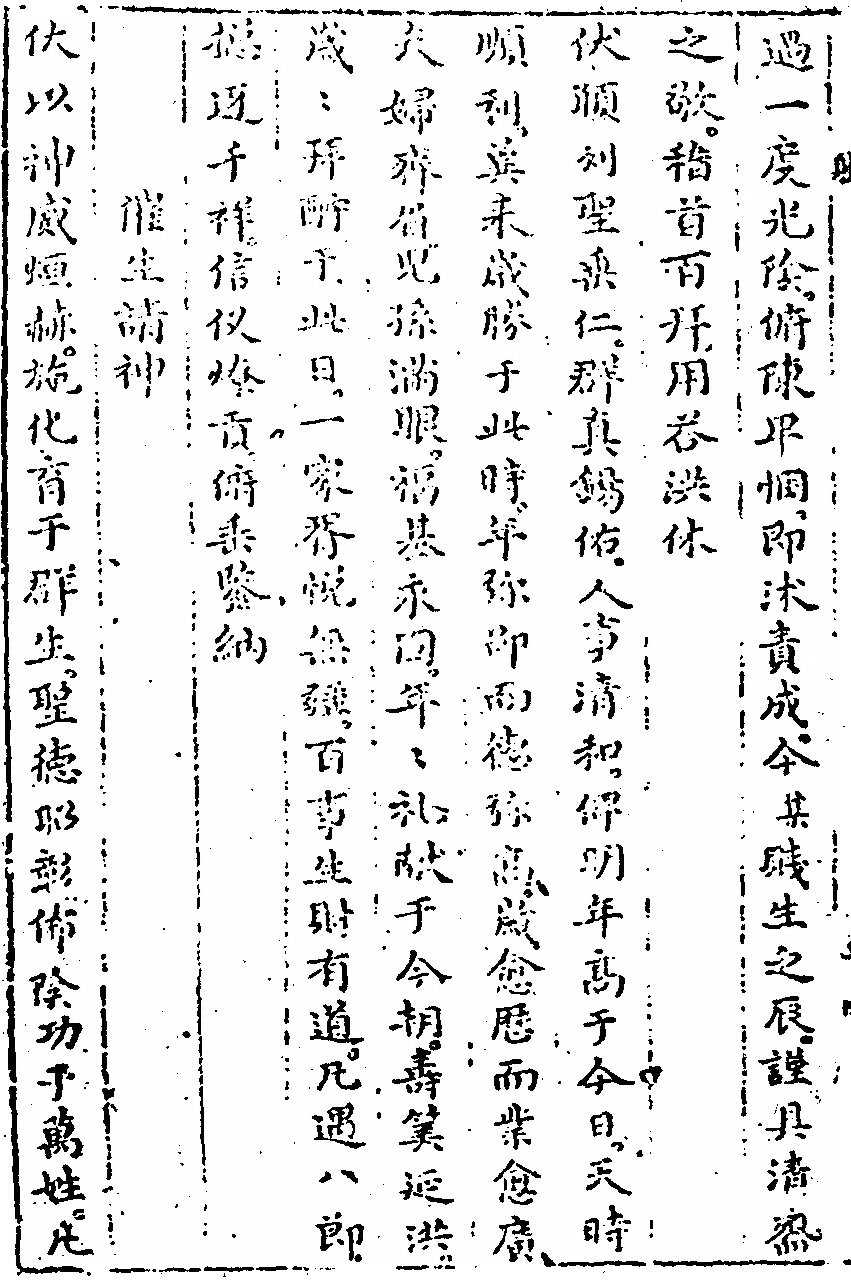 過一度光陰俯陳卑悃即沐責成今某賤生之辰謹具清齋
之敬稽首百拜用荅洪休
伏願列聖垂仁群真錫佑人事清和俾明年高于今日天時
順利冀来歲勝于此時年弥卲而德弥高歲愈歷而業愈廣
夫婦齊眉児孫满眼福基永固年〻礼献于今朝壽筭延洪
歲〻拜酧于此日一家胥悅無疆百事生財有道凡遇八節
揔迓千祥信仪燎貢俯垂鑒納
催生請神
伏以神威烜赫施化育于群生聖德昭彰佈陰功于萬姓凡